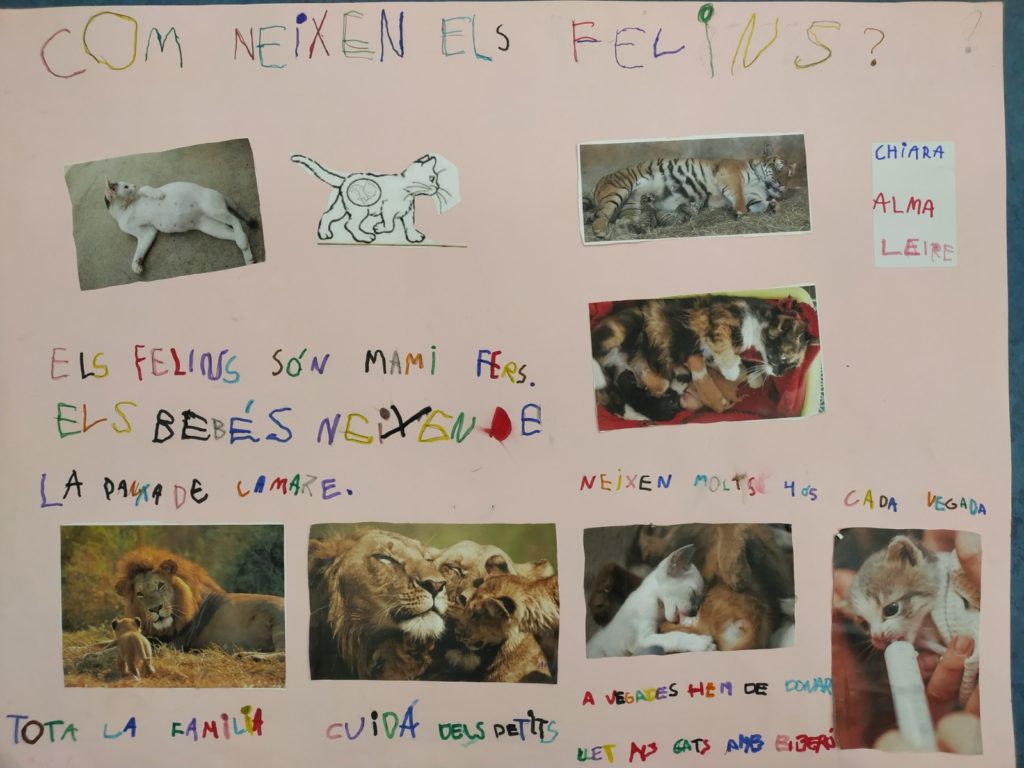 COM NEIXEN ELS FELINS?
CHIARA
ALMA
LEIRE
ELS FELINS SÓN MAMI FERS.
ELS BEBÉS NEIXEN DE
LA PANXA DE LAMARE.
NEIXEN MOLTS
CADA VEGADA
TOTA LA FAMILIA
CUIDA DELS PETITS
A VEGADES HEM DE DONAR
LLET ALS GATS AMB BIBERÓ